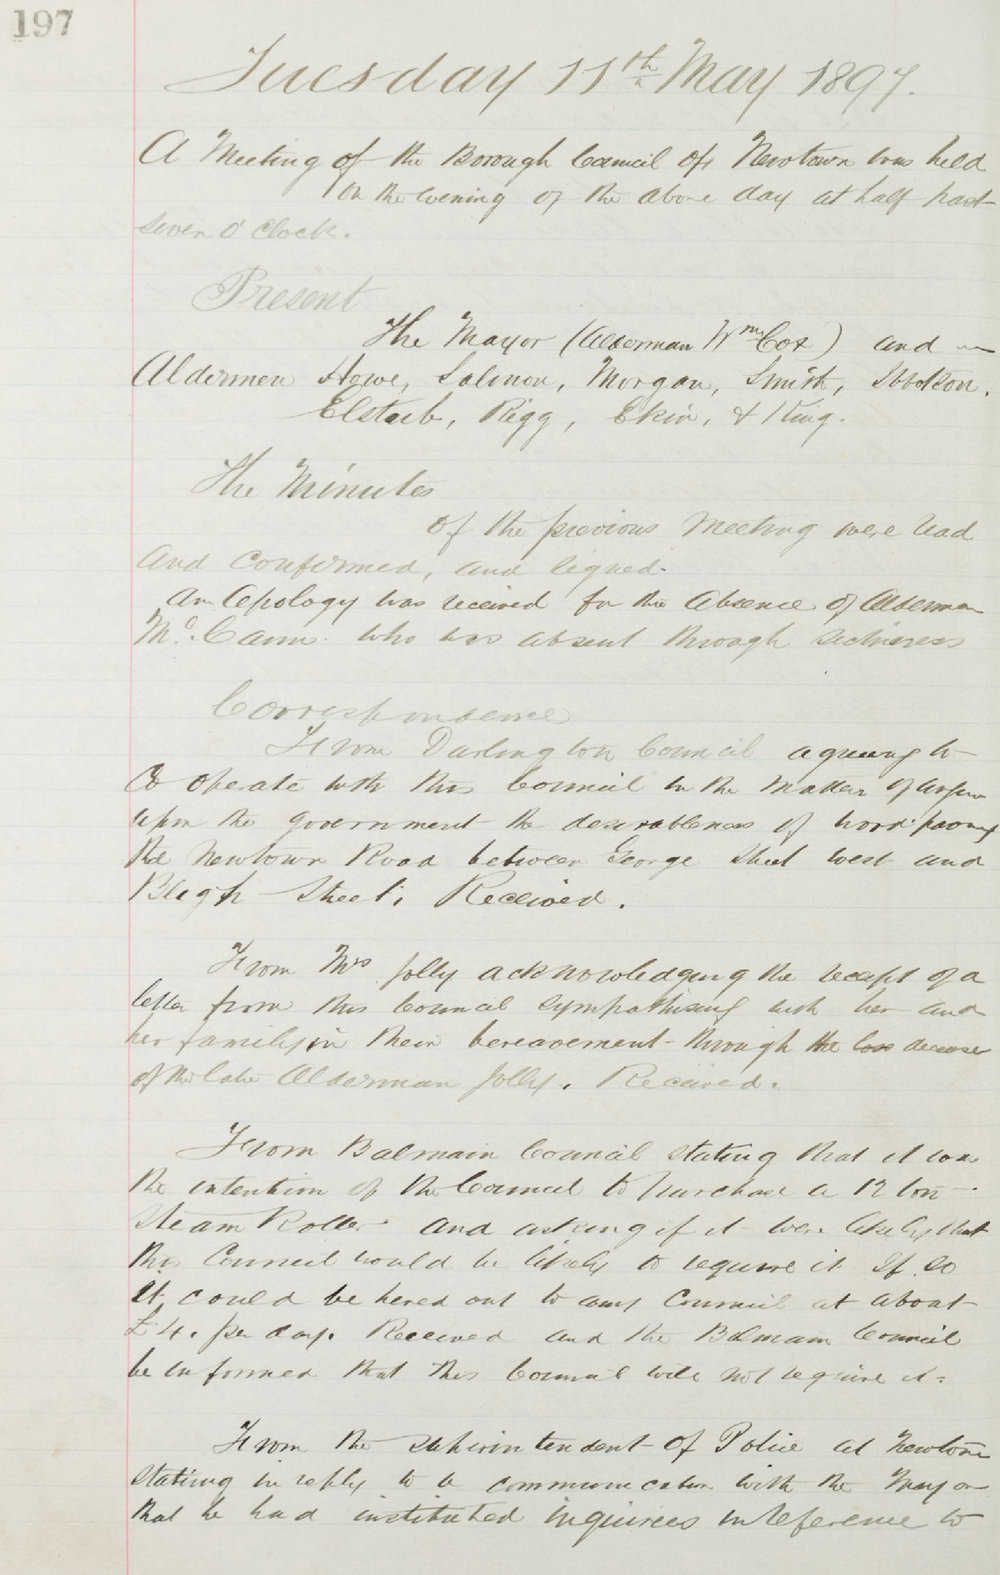 197
Tuesday 11th May 1897.
A Meeting of the Borough Council of Newtown was held
on the evening of the above day at half past
seven o'clock.
Present
The Mayor (Alderman Wm Cox) and
Aldermen Howe, Salmon, Morgan, Smith, Ibbotson,
Elstub, Rigg, Ekin, & King.
The Minutes
of the previous Meeting were read
and confirmed, and signed.
An Apology was received for the absence of Alderman
Mc.Cann. who was absent through sickness
Correspondence
From Darlington Council agreeing to
Co operate with this Council in the matter of urging
upon the government the desirableness of wood paving
the Newtown Road between George Street West and
Bligh Street. Received.
From Mrs Jolly acknowledging the receipt of a
letter from this Council sympathising with her and
her family in their bereavement through the loss decease
of the late Alderman Jolly. Received.
From Balmain Council stating that it was
the intention of the Council to purchase a 12 ton
Steam Roller and asking if it were likely that
this Council would be likely to require it If so
it could be hired out to any Council at about
£4. per day. Received and the Balmain Council
be informed that this Council will not require it.
From the Superintendent of Police at Newtown
stating in reply to a communication with the Mayor
that he had instituted inquiries in reference to